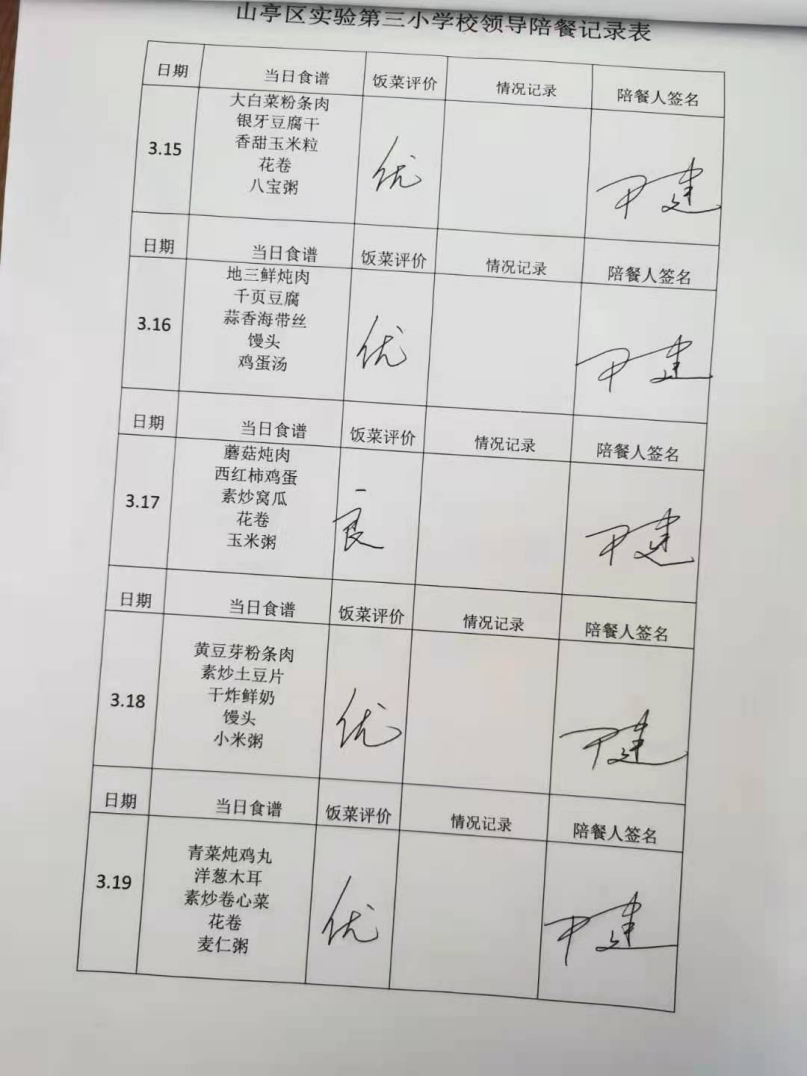 山亭区实验第三小学校领导陪餐记录表
日期 当日食谱 饭菜评价 情况记录 陪餐人签名
3.15
大白菜粉条肉
银牙豆腐干
香甜玉米粒
花卷
八宝粥
优
尹建
日期 当日食谱 饭菜评价 情况记录 陪餐人签名
3.16
地三鲜炖肉
千页豆腐
蒜香海带丝
馒头
鸡蛋汤
优
尹建
日期 当日食谱 饭菜评价 情况记录 陪餐人签名
3.17
蘑菇炖肉
西红柿鸡蛋
素炒窝瓜
花卷
玉米粥
良
尹建
日期 当日食谱 饭菜评价 情况记录 陪餐人签名
3.18
黄豆芽粉条肉
素炒土豆片
干炸鲜奶
馒头
小米粥
优
尹建
日期 当日食谱 饭菜评价 情况记录 陪餐人签名
3.19
青菜炖鸡丸
洋葱木耳
素炒卷心菜
花卷
麦仁粥
优
尹建